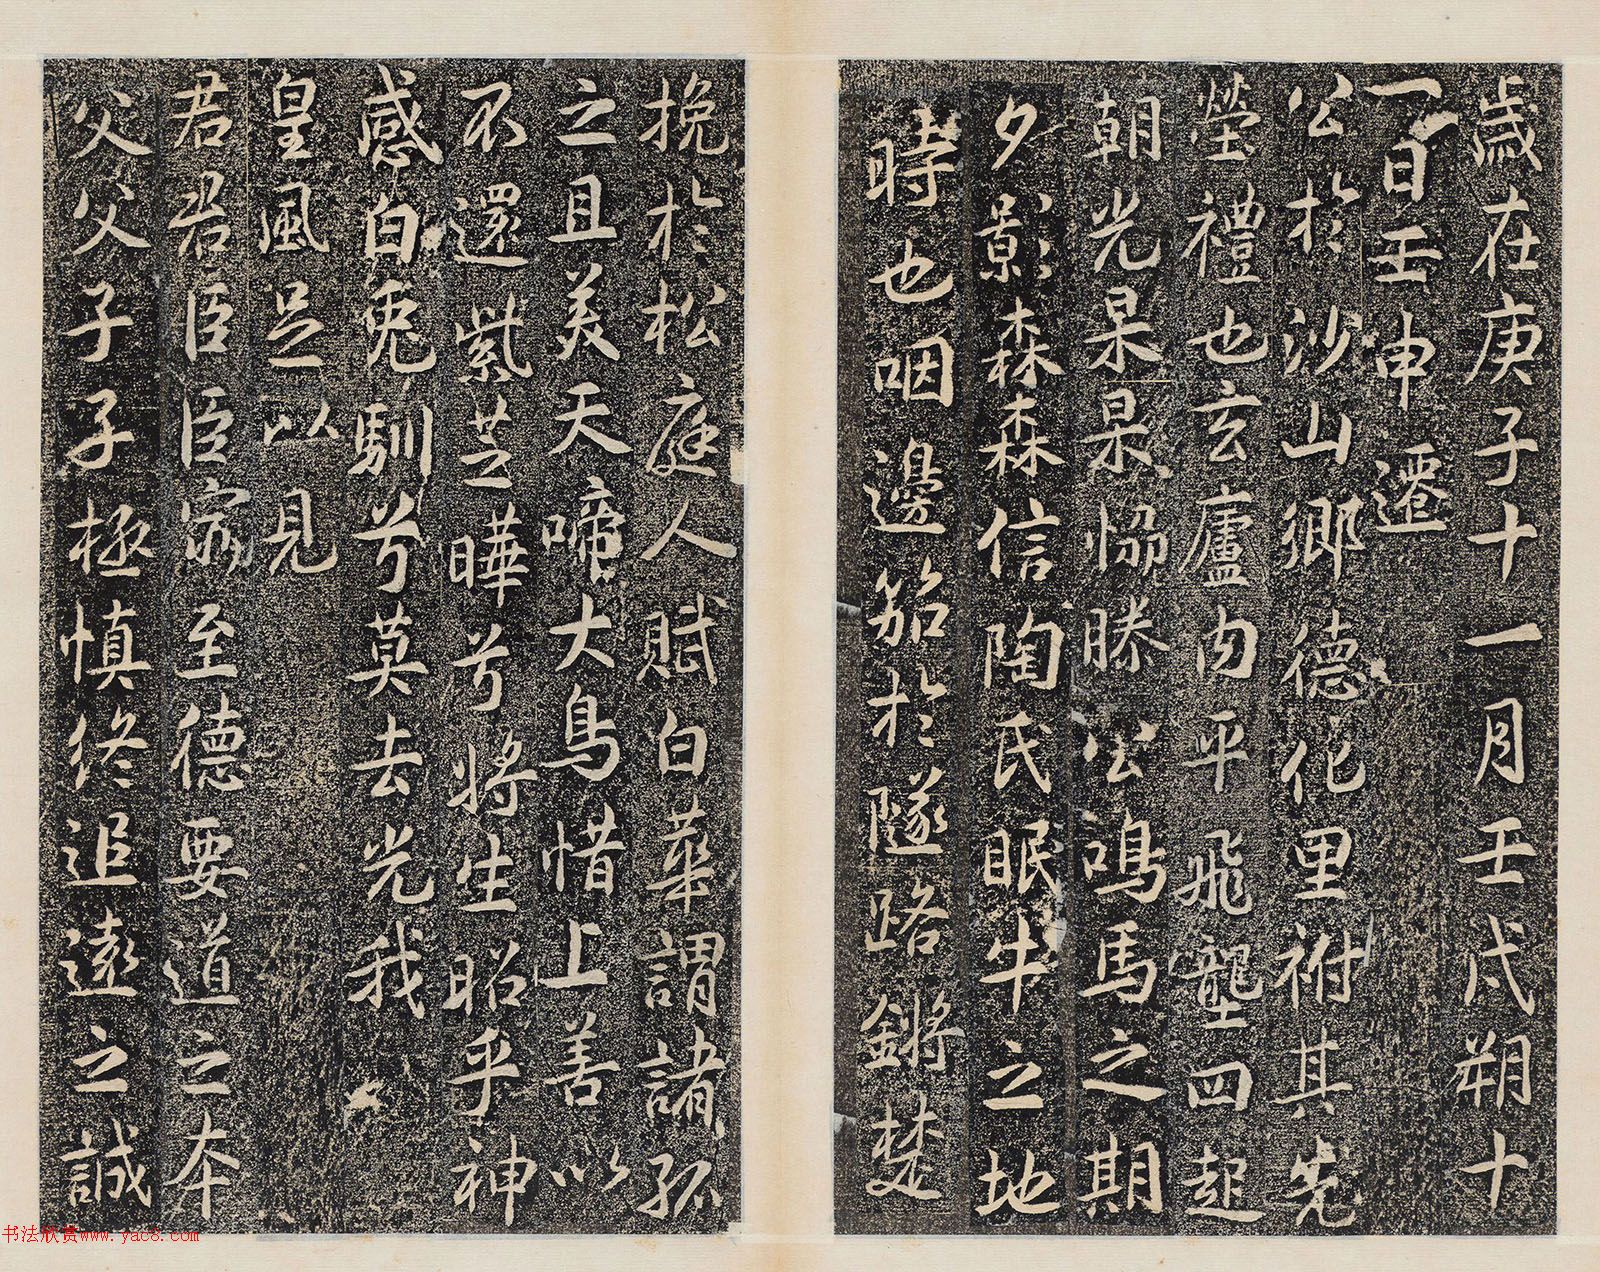 歲在庚子十一月壬戌朔十
一日壬申遷
公於沙山鄉德化里祔其先
塋禮也玄廬內平飛壟四起
朝光杲杲恊滕公鳴馬之期
夕影森森信陶氏眠牛之地
時也咽邊笳於隧路鏘楚
挽於松庭人賦白華謂諸孤
之且美天啼大鳥惜上善以
不還紫芝曄兮將生昭乎神
感白兔馴兮莫去光我
皇風足以見
君君臣臣寂至德要道之本
父父子子極慎終追遠之誠
书法欣赏www.yac8.com